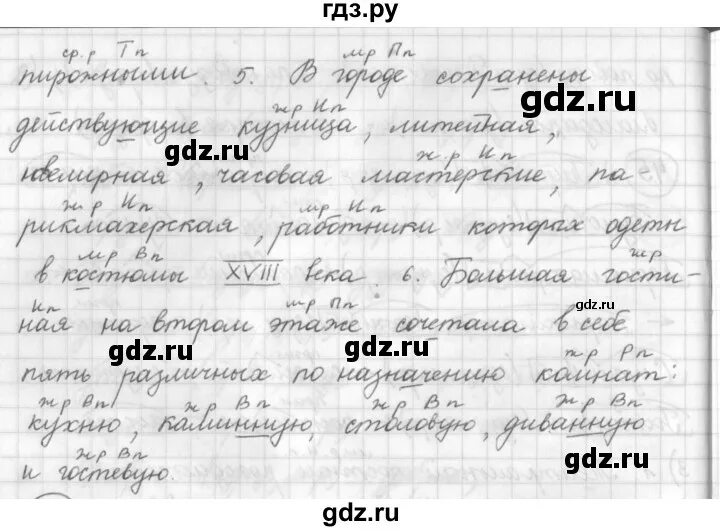 гдз.ру
ср.р Тп мр Пп
пирожными. 5. В городе сохранены
gdz.ru
жр Ип
действующие кузница, литейная,
gdz.ru
жр Ип
ювелирная, часовая мастерские, па-
жр Ип мр Ип
рикмахерская, работники которых одеты
мр Вп жр
в костюмы XVIII века. 6. Большая гости-
gdz.ru
Ип мр Пп
ная на втором этаже сочетала в себе
gdz.ru gdz.ru
жр Рп
пять различных по назначению комнат:
жр Вп жр Вп жр Вп жр Вп
кухню, каминную, столовую, диванную
жр Вп
и гостевую.
gdz.ru
gdz.ru